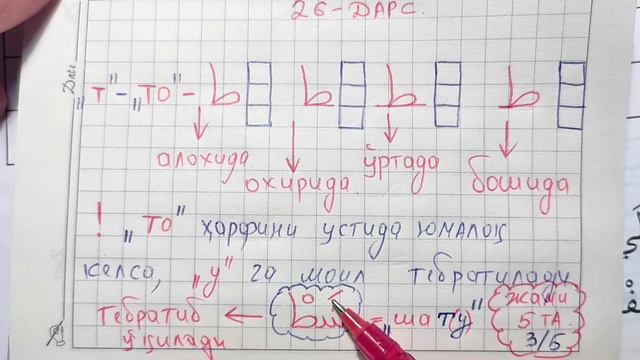 26-ДАРС.
Дата
„Т"-„ТО"- ط ط ط ط
алохида охирида ўртада бошида
! „ТО" ҳарфини устида юмалоқ
келса, „У" га моил тебратилади
тебратиб ← = „шату" жами
ўқилади 5 ТА
3/5